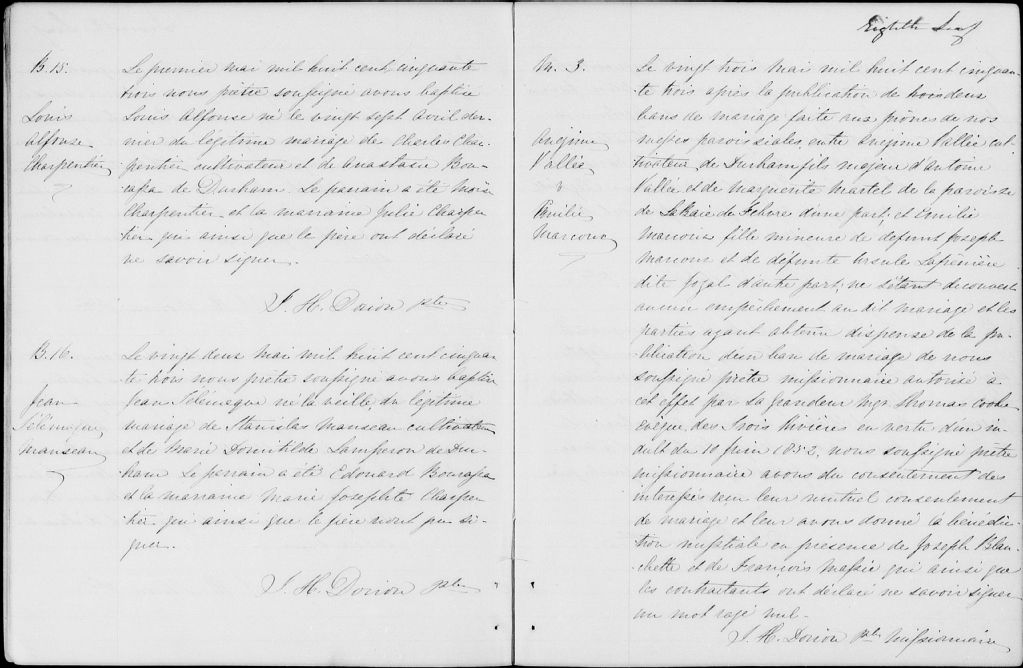 B. 15.
Louis
Alfonse
Charpentier
Le premier mai mil huit cent cinquante
trois nous prêtre soussigné avons baptisé
Louis Alfonse né le vingt sept avril der-
nier du légitime mariage de Charles Char-
pentier cultivateur et de Anastasie Bou-
capa de Durham. Le parrain a été Moïse
Charpentier et la marraine Julie Charpen
tier qui ainsi que le père ont déclaré
ne savoir signer.
J. H. Dorion ptre
B. 16.
Jean
Télémaque
Manseau
Le vingt deux Mai mil huit cent cinquan
te trois nous prêtre soussigné avons baptisé
Jean Télémaque né la veille du légitime
mariage de Stanislas Manseau cultivateur
et de Marie Domitilde Lamperon de Dur-
ham. Le parrain a été Edouard Boucapa
et la marraine Marie Josephte Charpen
tier qui ainsi que le père n'ont pu si-
gner.
J. H. Dorion ptre
Eighth Leaf
M. 3.
Onézime
Vallée
&
Emilie
Marcoux
Le vingt trois Mai mil huit cent cinquan-
te trois après la publication de trois deux
bans de mariage faite aux prônes de nos
messes paroissiales entre Onézime Vallée cul-
tivateur de Durham fils majeur d'Antoine
Vallée et de Marguerite Martel de la paroisse
de La Baie du Febvre d'une part; et Emilie
Marcoux fille mineure de defunt Joseph
Marcoux et de defunte Ursule
dite d'autre part; ne s'étant découvert
aucun empêchement au dit mariage et les
parties ayant obtenu dispense de la pu-
blication d'un ban de mariage de nous
soussigné prêtre missionnaire autorisé à
cet effet par Sa grandeur Mgr Thomas Cooke
évêque des Trois Rivières en vertu d'un in-
dult du 10 juin 1852, nous soussigné prêtre
missionnaire avons du consentement des
intéressés reçu leur mutuel consentement
de mariage et leur avons donné la bénédic-
tion nuptiale en présence de Joseph Blan-
chette et de François Massé qui ainsi que
les contractants ont déclaré ne savoir signer
un mot rayé nul.
J. H. Dorion ptre Missionnaire